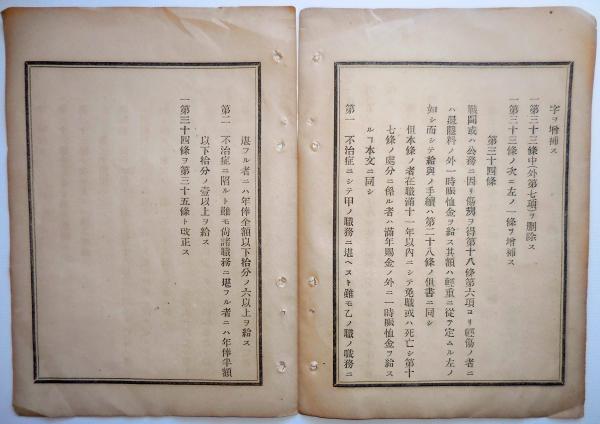 字ヲ增補ス
一第三十三條中(外第七項)ヲ删除ス
一第三十三條ノ次ニ左ノ一條ヲ增補ス
第三十四條
戰鬪或ハ公務ニ因リ傷痍ヲ得第十八條第六項ヨリ輕傷ノ者ニ
ハ退隱料ノ外一時賑恤金ヲ給ス其額ハ輕重ニ從テ定ムル左ノ
如シ而シテ給與ノ手續ハ第二十八條ノ但書ニ同シ
但本條ノ者在職滿十一年以內ニシテ免職或ハ死亡シ第十
七條ノ處分ニ係ル者ハ滿年賜金ノ外ニ一時賑恤金ヲ給ス
ルヿ本文ニ同シ
第一 不治症ニシテ甲ノ職務ニ堪ヘスト雖モ乙ノ職ノ職務ニ
堪フル者ニハ年俸全額以下拾分ノ六以上ヲ給ス
第二 不治症ニ陷ルト雖モ尙諸職務ニ堪フル者ニハ年俸半額
以下拾分ノ壹以上ヲ給ス
一第三十四條ヲ第三十五條ト改正ス